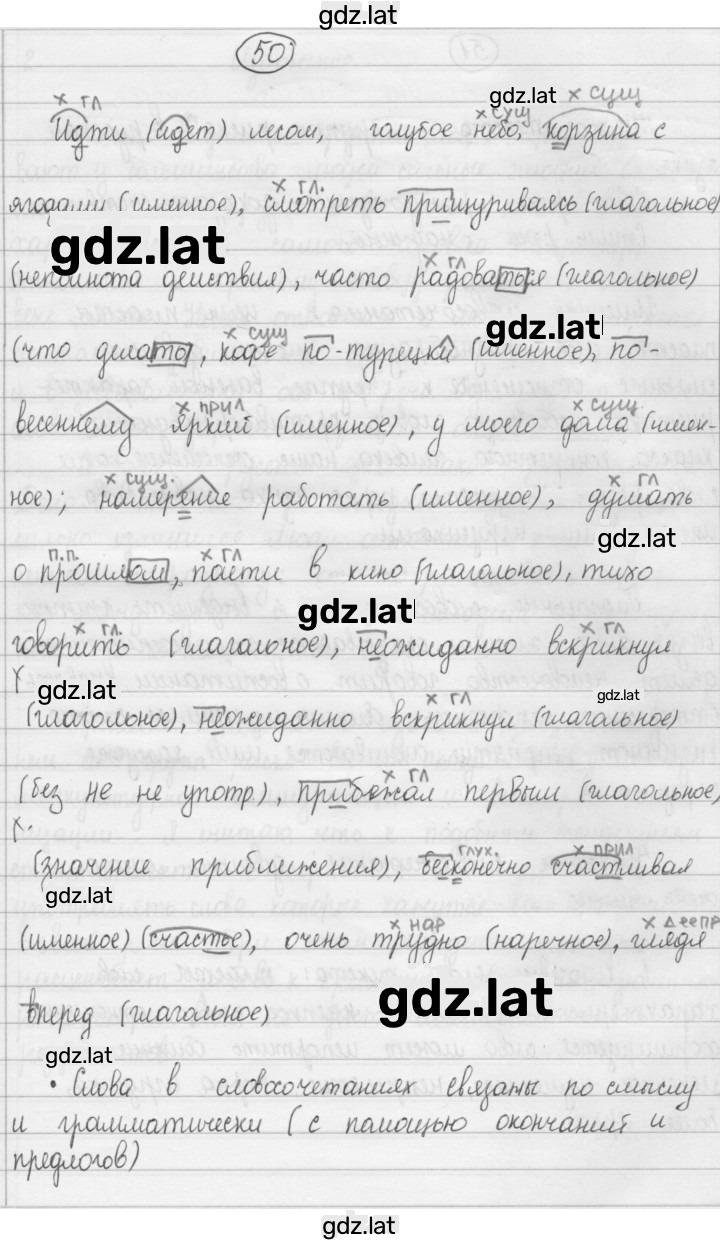 gdz.lat
50
х гл gdz.lat х сущ х сущ
Идти (идет) лесом, голубое небо, корзина с
х гл.
ягодами (именное), смотреть прищуриваясь (глагольное)
gdz.lat х гл
(неполнота действия), часто радоваться (глагольное)
х сущ gdz.lat
(что делать), кофе по-турецки (именное), по-
х прил х сущ
весеннему яркий (именное), у моего дома (имен-
х сущ х гл
ное); намерение работать (именное), думать
gdz.lat
п.п. х гл
о прошлом, пойти в кино (глагольное), тихо
gdz.lat
х гл. х гл
говорить (глагольное), неожиданно вскрикнул
gdz.lat х гл gdz.lat
(глагольное), неожиданно вскрикнул (глагольное)
х гл
(без не не употр), прибежал первым (глагольное)
глух. х прил
(значение приближения), бесконечно счастливая
gdz.lat
х нар х деепр
(именное) (счастье), очень трудно (наречное), глядя
gdz.lat
вперед (глагольное)
gdz.lat
• Слова в словосочетаниях связаны по смыслу
и грамматически (с помощью окончаний и
предлогов)
gdz.lat